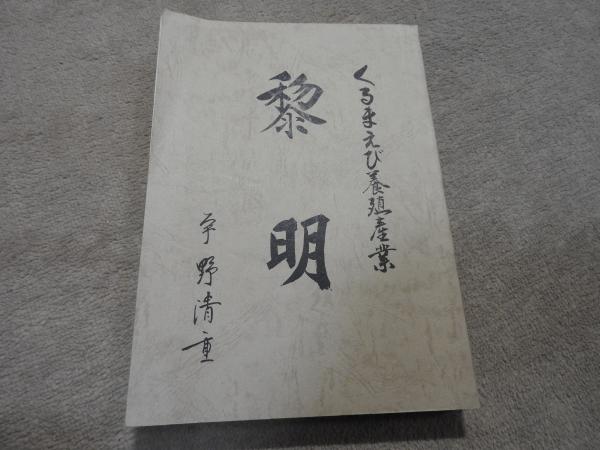 くるまえび養殖産業
黎明
平野清重